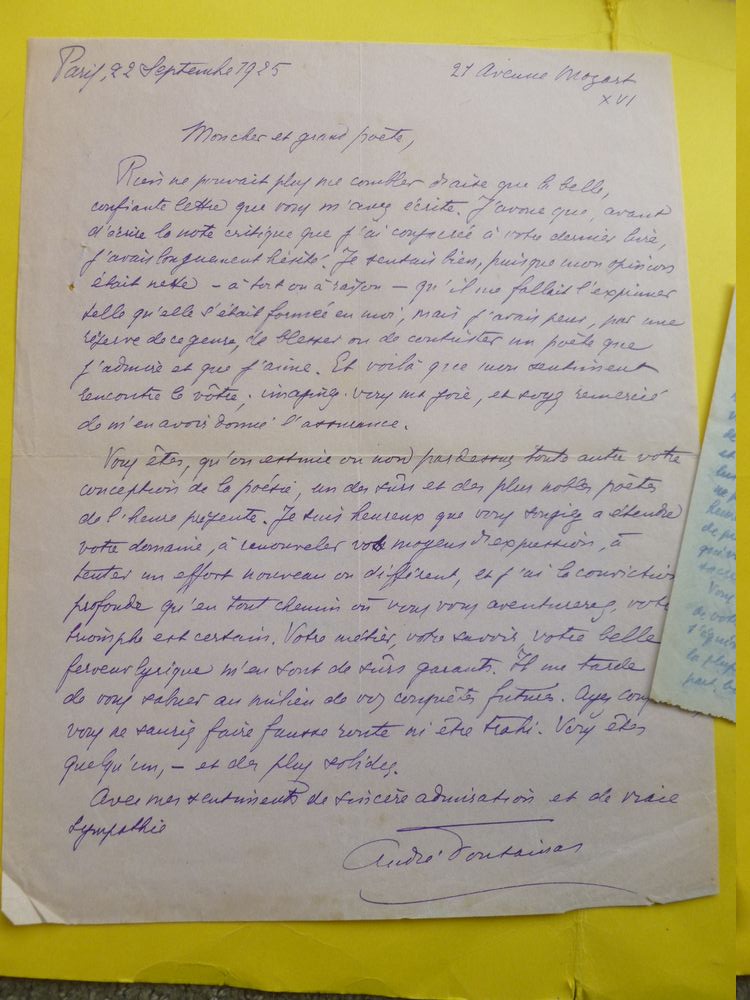 Paris, 22 Septembre 1925
21 Avenue Mozart
XVI
Mon cher et grand poète,
Rien ne pouvait plus me combler d'aise que la belle,
confiante lettre que vous m'avez écrite. J'avoue que, avant
d'écrire la note critique que j'ai consacrée à votre dernier livre,
j'avais longuement hésité. Je sentais bien, puisque mon opinion
était nette – à tort ou à raison – qu'il me fallait l'exprimer
telle qu'elle s'était formée en moi, mais j'avais peur, par une
réserve de ce genre, de blesser ou de contrister un poète que
j'admire et que j'aime. Et voilà que mon sentiment
rencontre le vôtre; imaginez-vous ma joie, et soyez remercié
de m'en avoir donné l'assurance.
Vous êtes, qu'on estime ou non par dessus toute autre votre
conception de la poésie, un des sûrs et des plus nobles poètes
de l'heure présente. Je suis heureux que vous songiez à étendre
votre domaine, à renouveler vos moyens d'expression, à
tenter un effort nouveau ou différent, et j'ai la conviction
profonde qu'en tout chemin où vous vous aventurerez, votre
triomphe est certain. Votre métier, votre savoir, votre belle
ferveur lyrique m'en sont de sûrs garants. Il me tarde
de vous saluer au milieu de vos conquêtes futures. Ayez con
vous ne sauriez faire fausse route ni être trahi. Vous êtes
quelqu'un, – et des plus solides.
Avec mes sentiments de sincère admiration et de vraie
sympathie
André Fontainas